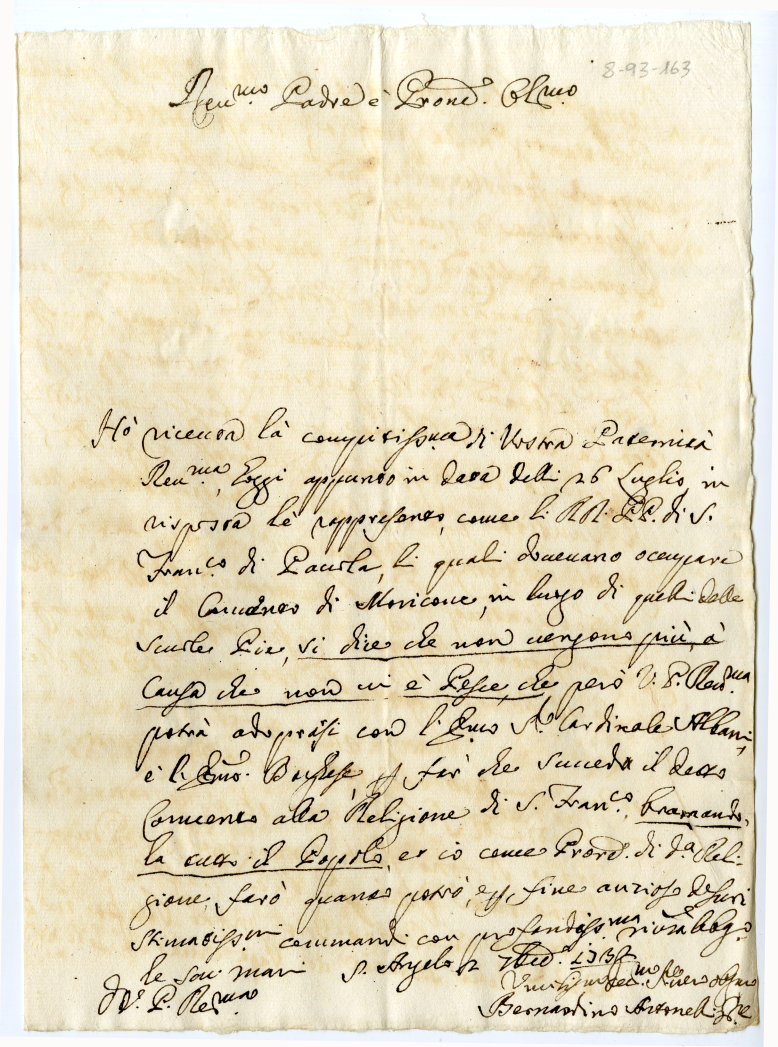 8-93-163
Reu.mo Padre è Pron.e Col.mo
Hò riceuuta la compitissma di Vostra Paternità
Reu.ma, hoggi appunto in data delli 26 Luglio, in
risposta lè rappresento, come li RR. PP. di S.
Fran.co di Paula, li quali doueuano occupare
il Conuento di Moricone, in luogo di quelli delle
Scuole Pie, si dice che non uengono più, à
Causa che non ui è Pesce, che però V. P. Reu.ma
potrà adoprasi con l'Emo Sr. Cardinale Albani,
è l'Emo. Borghese far che succeda il detto
Conuento alla Religione di S. Fran.co, bramando-
la tutto il Popolo, et io come Prond. di d.a Reli-
gione, farò quanto potrò, e fine anzioso de suoi
stimatissmi commandi con profondissma riuza bbgo
le sac: mani S. Angelo 2
D. V. P. Reu.ma
Bernardino Antonelli